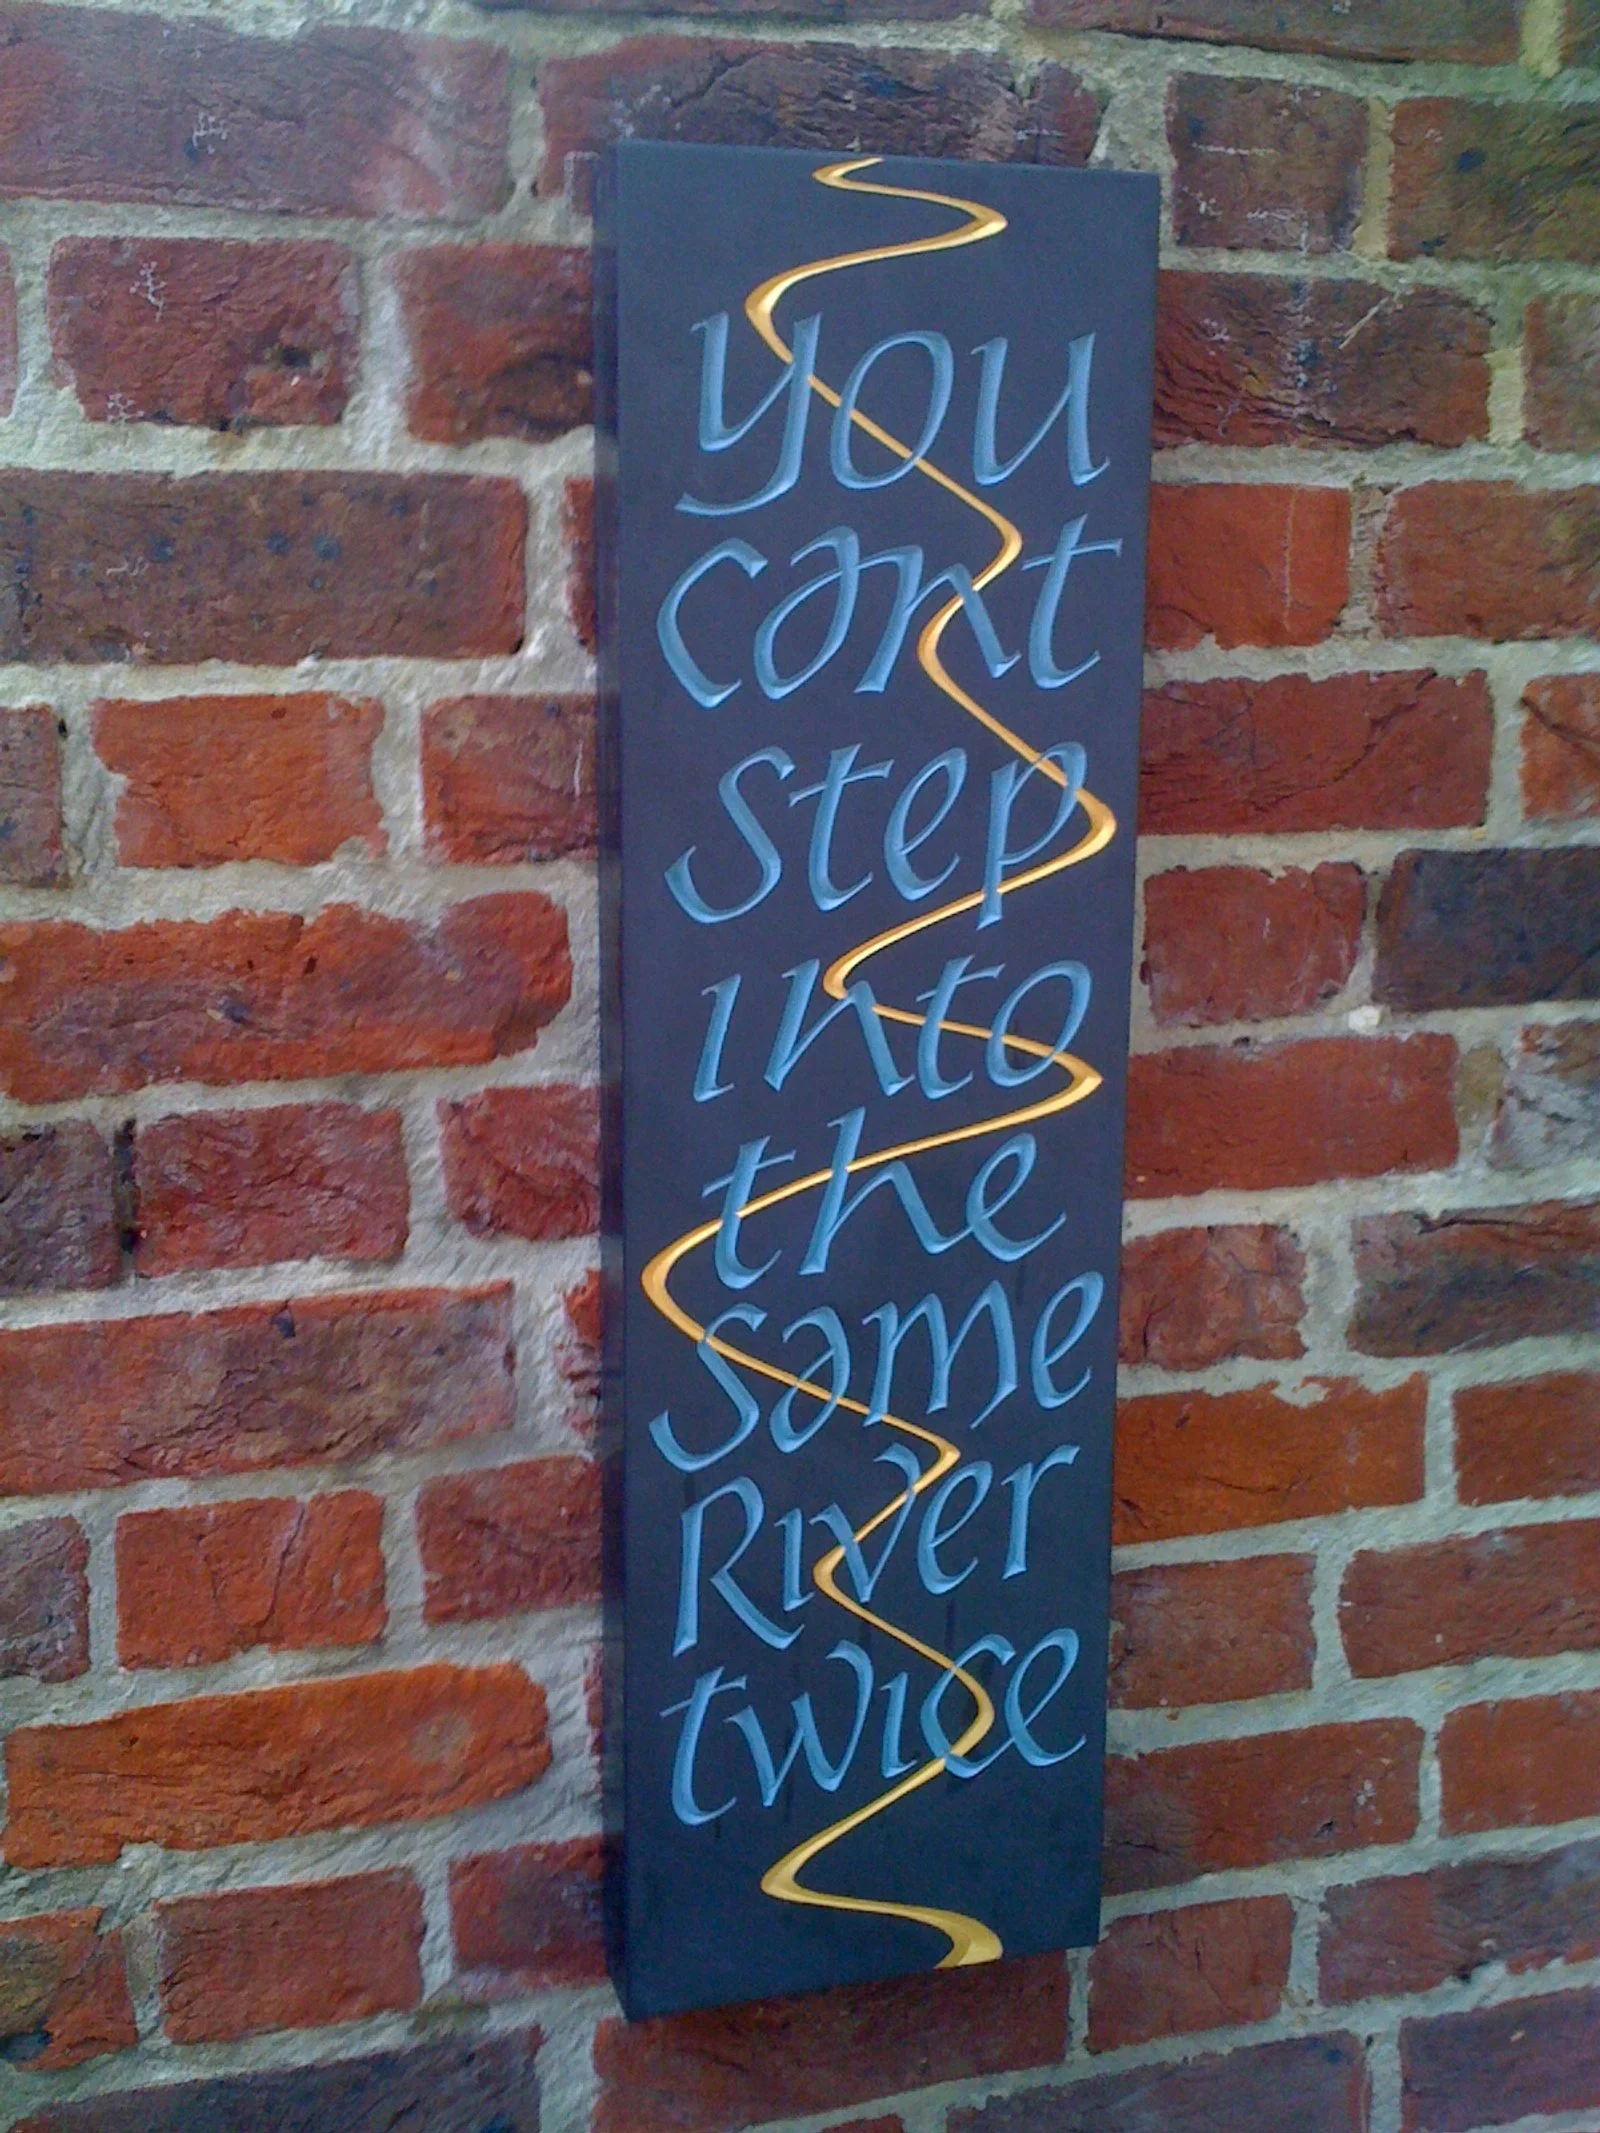 you
cant
step
into
the
same
River
twice